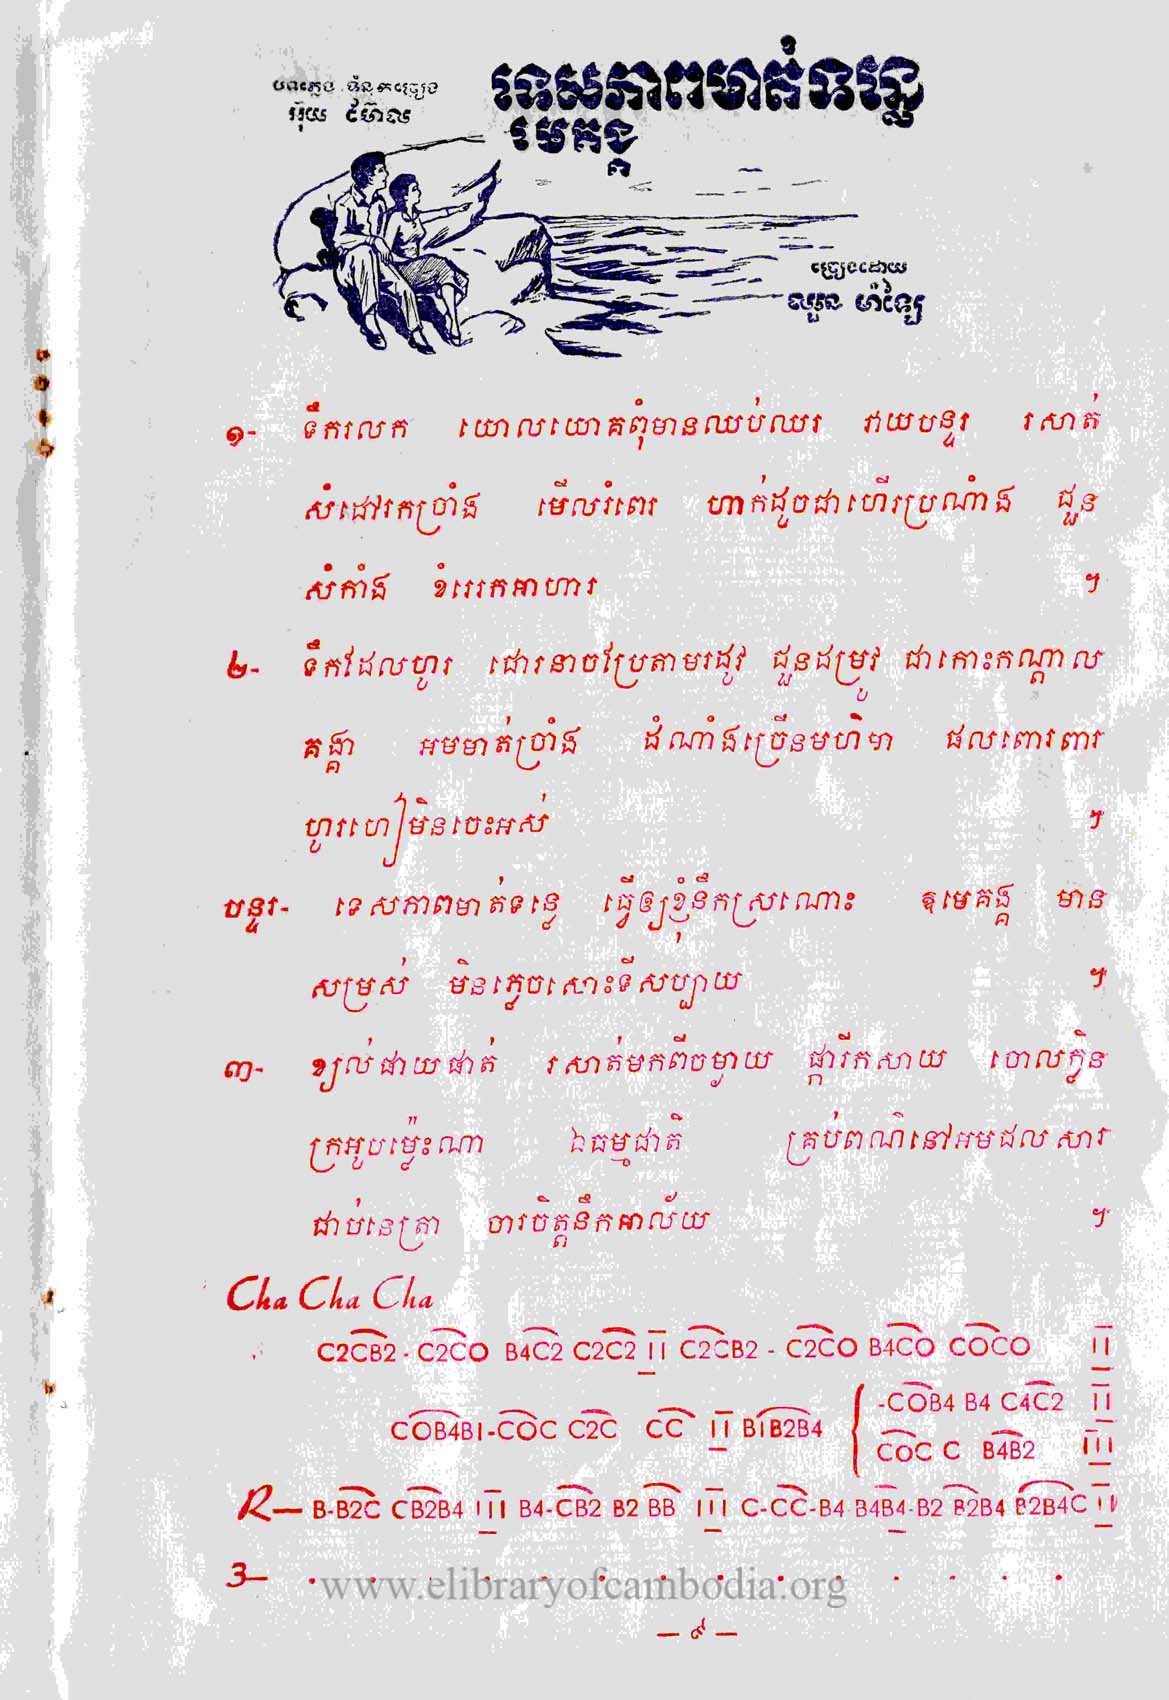 បទភ្លេង ទំនុកច្រៀង
អ៊ុយ ៩ម៉ែល
ទេសភាពមាត់ទន្លេ
មេគង្គ
ច្រៀងដោយ
១- ទឹករលក យោលយោគពុំមានឈប់ឈរ វាយបន្ទរ រសាត់
សំដៅរកច្រាំង មើលរំពេរ ហាក់ដូចជាហើរប្រណាំង ជួន
សំកាំង ខំរេរកអាហារ ៗ
២- ទឹកដែលហូរ ដោរនាចប្រែតាមរដូវ ជួនជម្រូវ ជាកោះកណ្តាល
គង្គា អមមាត់ច្រាំង ដំណាំងច្រើនមហិមា ផលពោរពារ
ហូរហៀមិនចេះអស់ ៗ
បន្ទរ- ទេសភាពមាត់ទន្លេ ធ្វើឲ្យខ្ញុំនឹកស្រណោះ ឱមេគង្គ មាន
សម្រស់ មិនភ្លេចសោះទីសប្បាយ ៗ
៣- ខ្យល់ផាយផាត់ រសាត់មកពីចម្ងាយ ផ្ការីកសាយ ចោលក្លិន
ក្រអូបម្ល៉េះណា ឯធម្មជាតិ គ្រប់ពណ៌នៅអមផលសារ
ជាប់នេត្រា ចារចិត្តនឹកអាល័យ ៗ
Cha Cha Cha
C2CB2 - C2CO B4C2 C2C2 II C2CB2 - C2CO B4CO COCO II
COB4B1-COC C2C CC II B1B2B4 -COB4 B4 C4C2 II
COC C B4B2 III
R- B-B2C CB2B4 III B4-CB2 B2 BB III C-CC-B4 B4B4-B2 B2B4 B2B4C II
3- . . . . . . . . . . . . .
www.elibraryofcambodia.org
— ៩ —